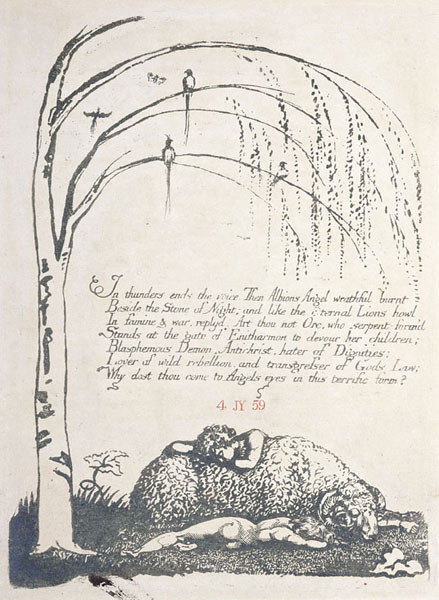 In thunders ends the voice. Then Albions Angel wrathful burnt
Beside the Stone of Night; and like the Eternal Lions howl
In famine & war, reply'd. Art thou not Orc, who serpent form'd
Stands at the gate of Enitharmon to devour her children;
Blasphemous Demon, Antichrist, hater of Dignities;
Lover of wild rebellion, and transgresser of Gods Law;
Why dost thou come to Angels eyes in this terrific form?
4 JY 59